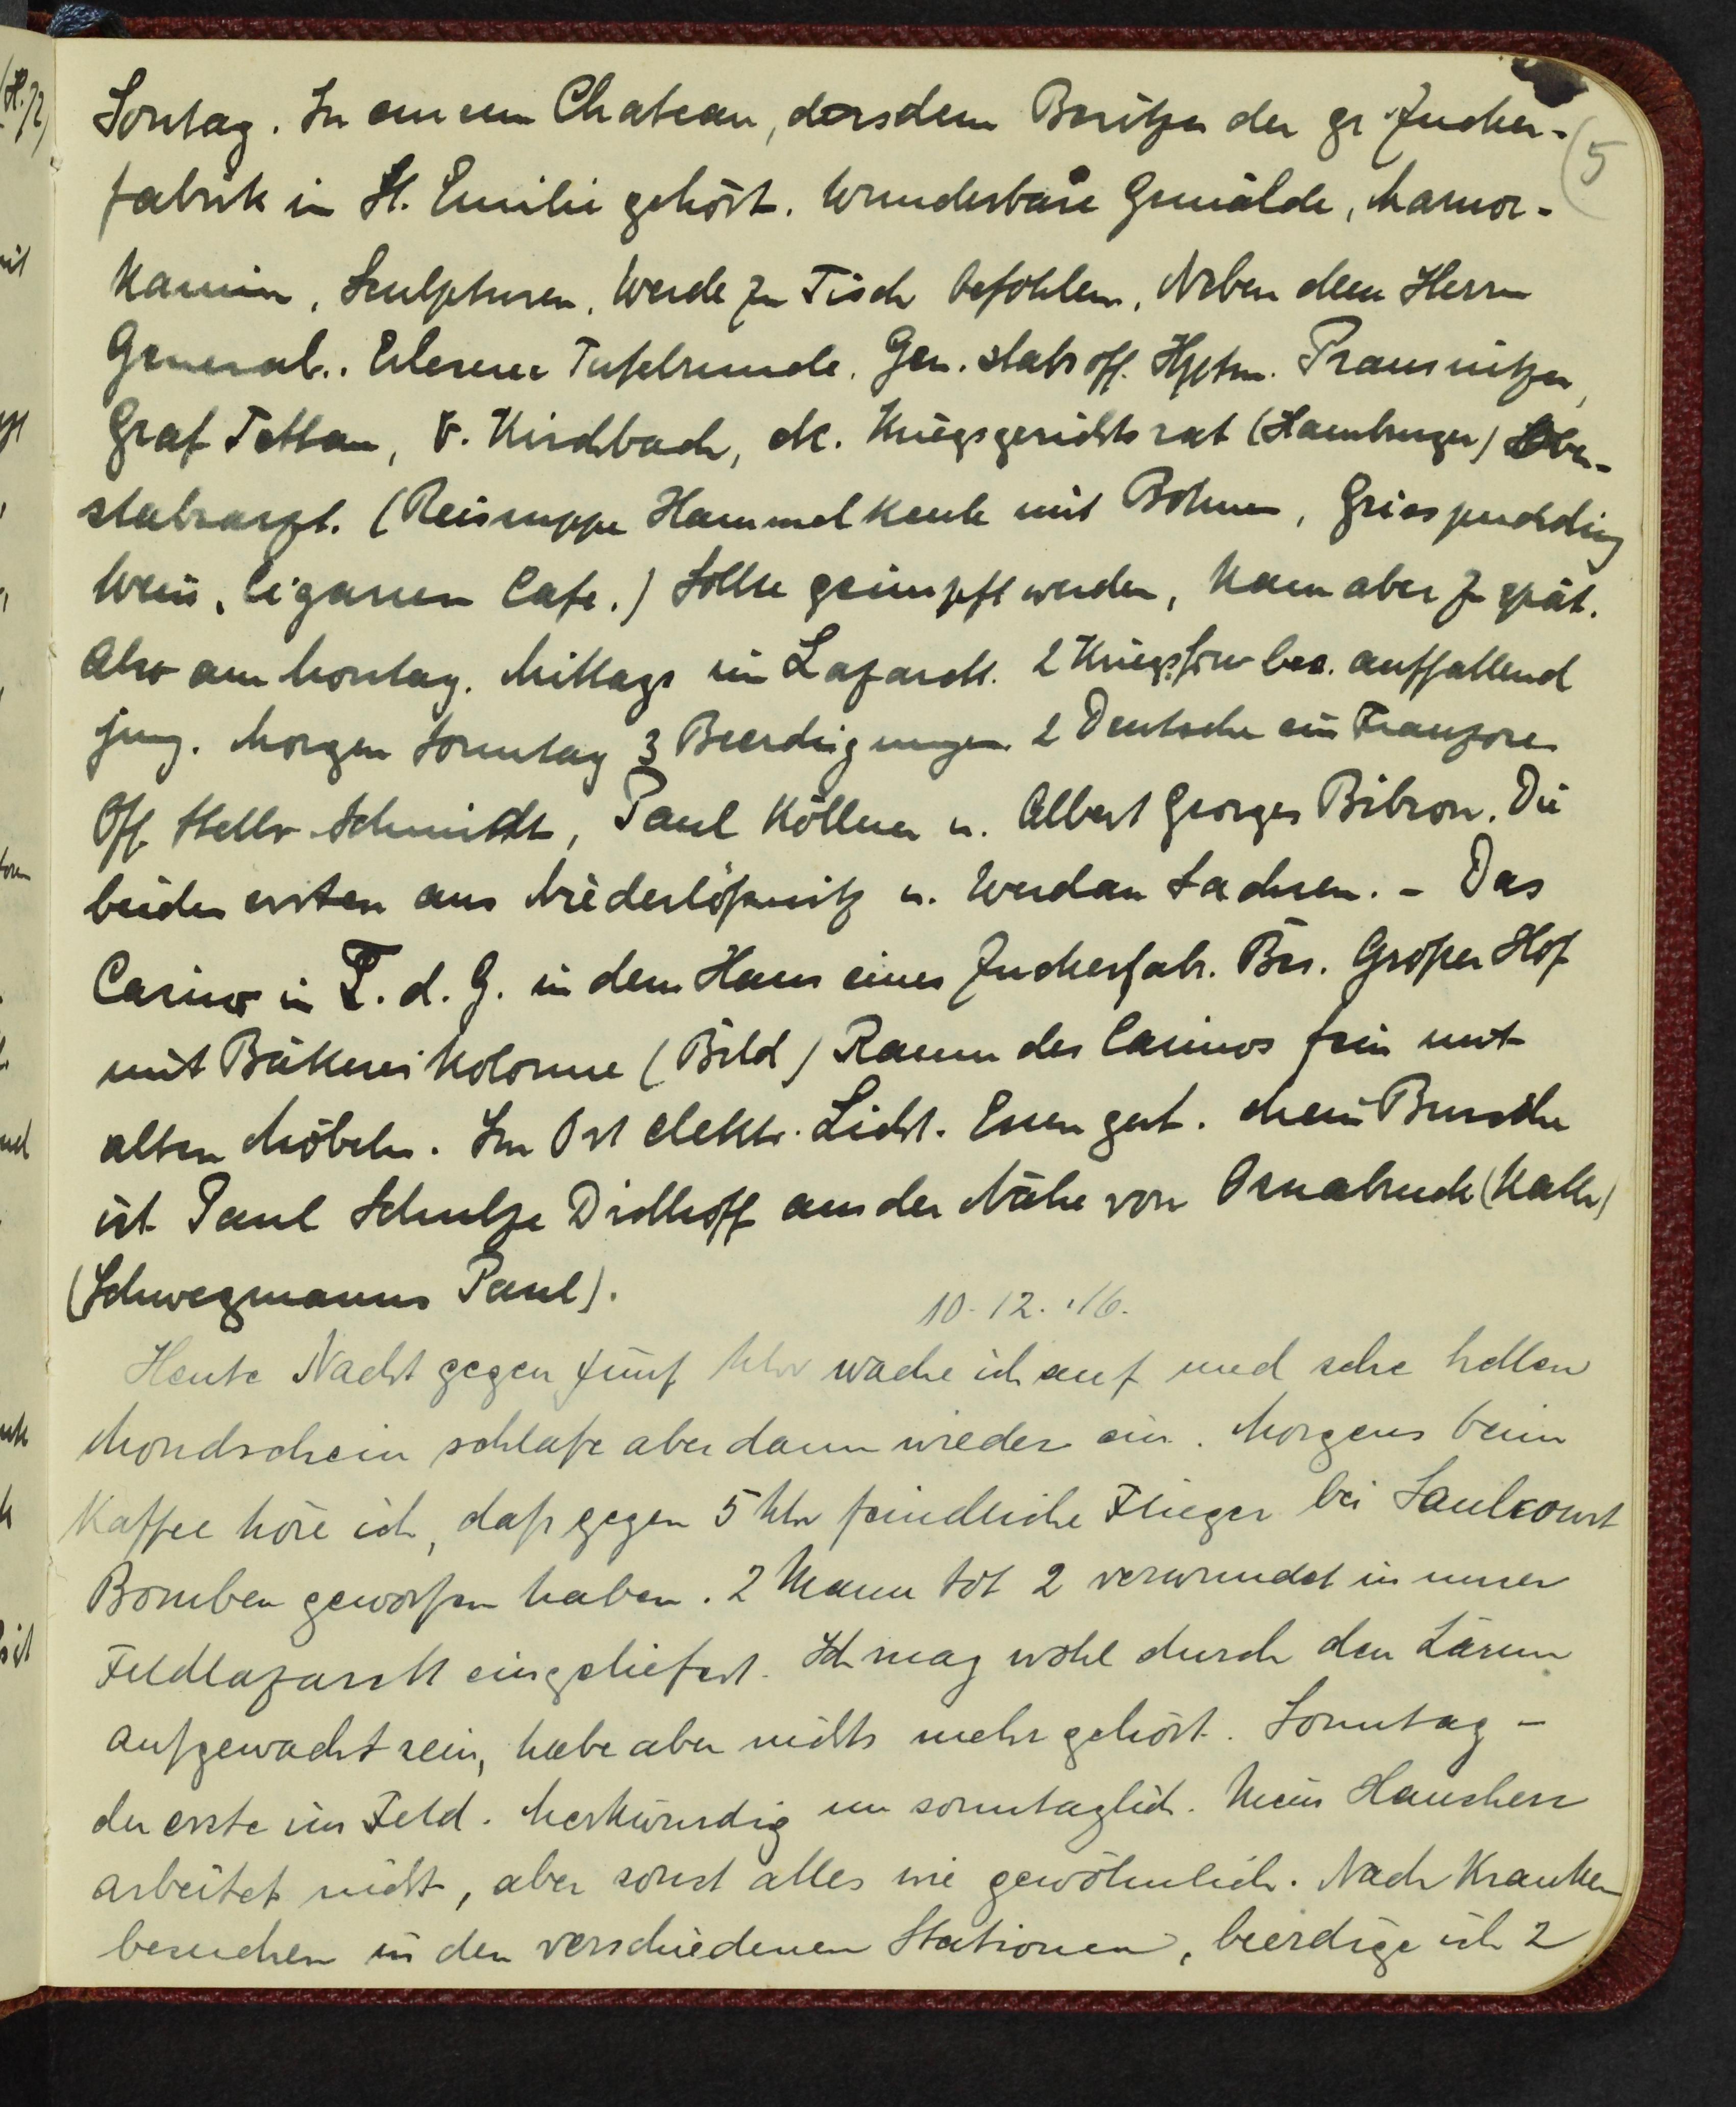 5
Sontag. In einem Chateau, das dem Besitzer der gr Zucker-
fabrik in St. Emilie gehört. Wunderbare Gemälde, Marmor-
kamin, Sculpturen. Werde zu Tisch befohlen. Neben dem Herrn
General. Erlesene Tafelrunde. Gen. stabsoff. Hptm. Prausnitzer,
Graf Tettau, v. Kirchbach, etc. Kriegsgerichtsrat (Hamburger) Ober-
stabsarzt. (Reissuppe Hammelkeule mit Bohnen, Griespudding
Wein, Cigarren Cafe.) Sollte geimpft werden, kam aber zu spät.
Also am Montag. Mittags im Lazarett. 2 Kriegsfrw bes. auffallend
jung. Morgen Sonntag 3 Beerdigungen. 2 Deutsche ein Franzose
Off Stellv Schmidt, Paul Köllner u. Albert Georges Bibron. Die
beiden ersten aus Niederlößnitz u. Werdau Sachsen. - Das
Casino in T. d. G. in dem Haus eines Zuckerfab. Bes. Großer Hof
mit Bäkerei Kolonne (Bild) Raum des Casinos fein mit
alten Möbeln. Im Ort elektr. Licht. Essen gut. Mein Bursche
ist Paul Schulze aus der Nähe von Osnabruck (Kath)
(Schwegmanns Paul).
10.12.16.
Heute Nacht gegen fünf Uhr wache ich auf und sehe hellen
Mondschein schlafe aber dann wieder ein. Morgens beim
Kaffee höre ich, daß gegen 5 Uhr feindliche Flieger bei Saulcourt
Bomben geworfen haben. 2 Mann tot 2 verwundet in unser
Feldlazarett eingeliefert. Ich mag wohl durch den Lärm
aufgewacht sein, habe aber nichts mehr gehört. Sonntag -
der erste im Feld. Merkwürdig un sonntaglich. Mein Hausherr
arbeitet nicht, aber sonst alles wie gewöhnlich. Nach Kranken
besuchen in den verschiedenen Stationen, beerdige ich 2